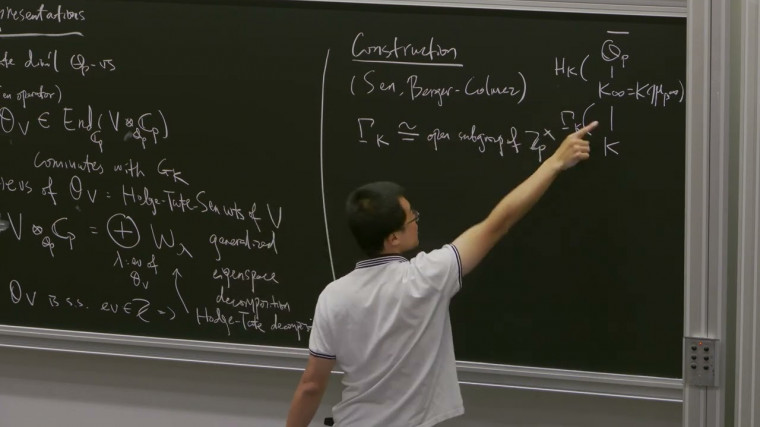 presentations
te dim'l ℚp-vs
en operator)
Θ_V ∈ End_{ℂp}(V ⊗_{ℚp} ℂp)
commutes with G_K
evs of Θ_V = Hodge-Tate-Sen wts of V
V ⊗_{ℚp} ℂp = ⊕_{λ: ev of Θ_V} W_λ generalized
eigenspace
decomposition
Θ_V is s.s. ev ∈ ℤ => Hodge-Tate decompo
Construction
(Sen, Berger-Colmez)
Γ_K ≅ open subgroup of ℤp^×
H_K ( ℚ̄p
K∞ = K(μp∞)
Γ_K (
K